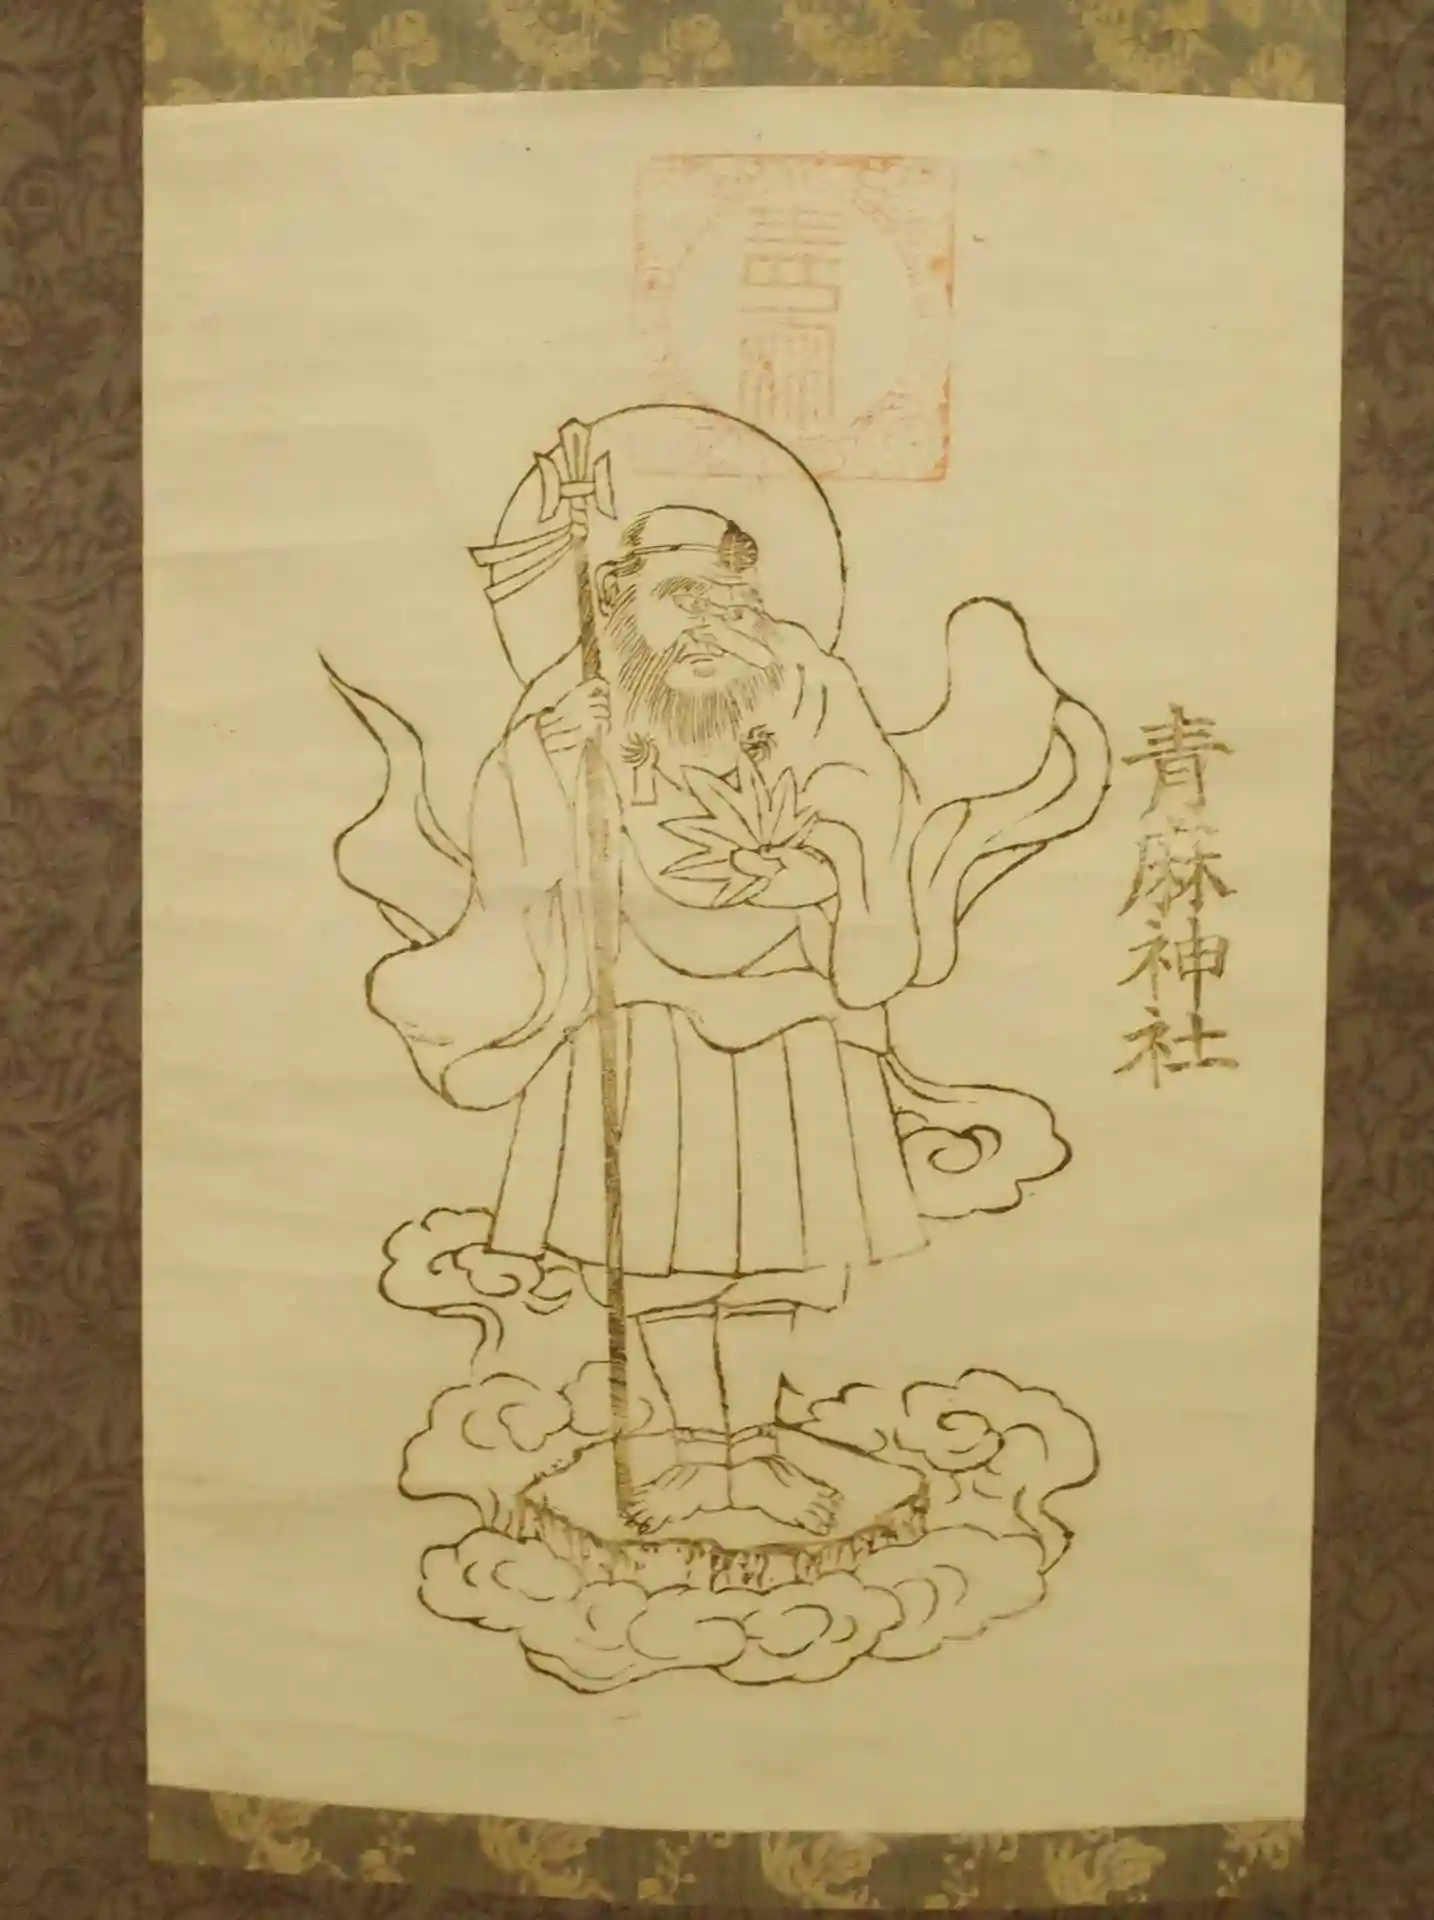 青麻神社
青麻